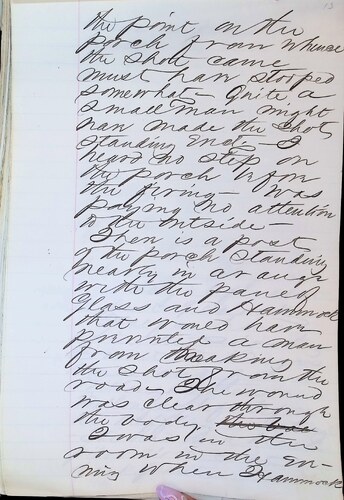 13
the point on the
porch from whence
the shott came
must have stooped
somewhat - Quite a
small man might
have made the shot
standing Erect - I
heard no step on
the porch upon
the firing - was
paying no attention
to the outside -
There is a post
of the porch standing
nearly in a range
with the pane of
Glass and Hammock
that would have
prevented a man
from making
the shot from the
road. The wound
was clear through
the body.
I was in the
room in the Eve-
ning when Hammock